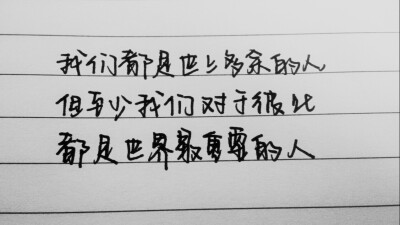 我们都是世上多余的人
但至少我们对于彼此
都是世界最重要的人